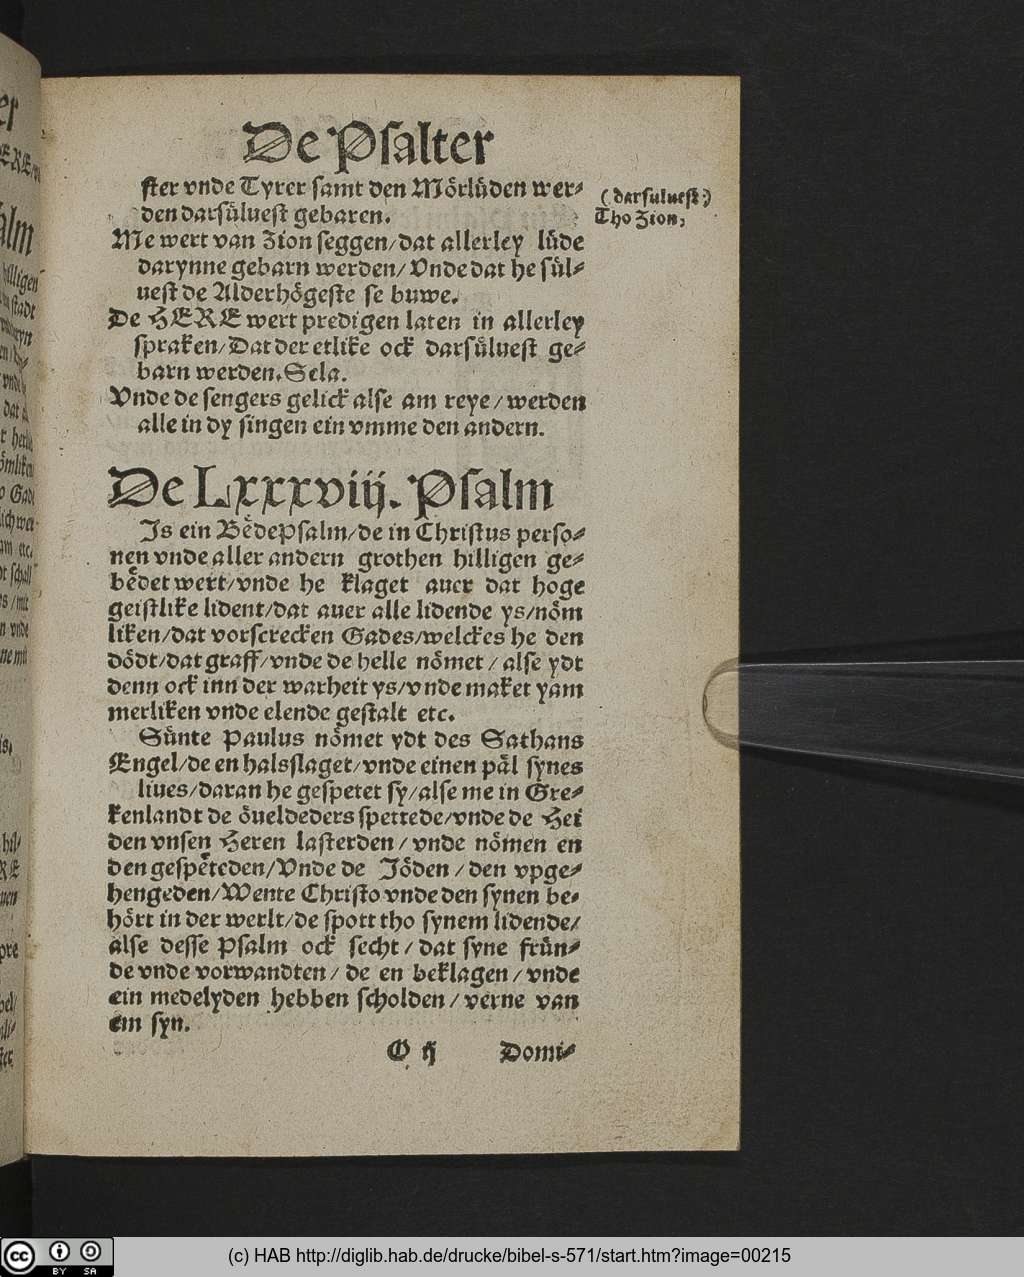 De Psalter
ster vnde Tyrer samt den Mörlüden wer⸗
den darsüluest gebaren.
(darsuluest)
Tho Zion,
Me wert van Zion seggen/dat allerley lüde
darynne gebarn werden/Vnde dat he sül⸗
uest de Alderhögeste se buwe.
De HERE wert predigen laten in allerley
spraken/Dat der etlike ock darsüluest ge⸗
barn werden.Sela.
Vnde de sengers gelick alse am reye/werden
alle in dy singen ein vmme den andern.
De Lxxxviij. Psalm
Is ein BedePsalm/de in Christus perso⸗
nen vnde aller andern grothen hilligen ge⸗
bedet wert/vnde he klaget auer dat hoge
geistlike lident/dat auer alle lidende ys/nöm
liken/dat vorscrecken Gades/welckes he den
dödt/dat graff/vnde de helle nömet/alse ydt
denn ock inn der warheit ys/vnde maket yam
merliken vnde elende gestalt etc.
Sünte Paulus nömet ydt des Sathans
Engel/de en halsslaget/vnde einen pål synes
liues/daran he gespetet sy/alse me in Gre⸗
kenlandt de öueldeders spettede/vnde de Hei
den vnsen Heren lasterden/vnde nömen en
den gespeteden/Vnde de Jöden/den vpge⸗
hengeden/Wente Christo vnde den synen be⸗
hört in der werlt/de spott tho synem lidende/
alse desse Psalm ock secht/dat syne frün⸗
de vnde vorwandten/de en beklagen/vnde
ein medelyden hebben scholden/verne van
em syn.
O ij Domi⸗
(c) HAB http://diglib.hab.de/drucke/bibel-s-571/start.htm?image=00215
cc BY SA